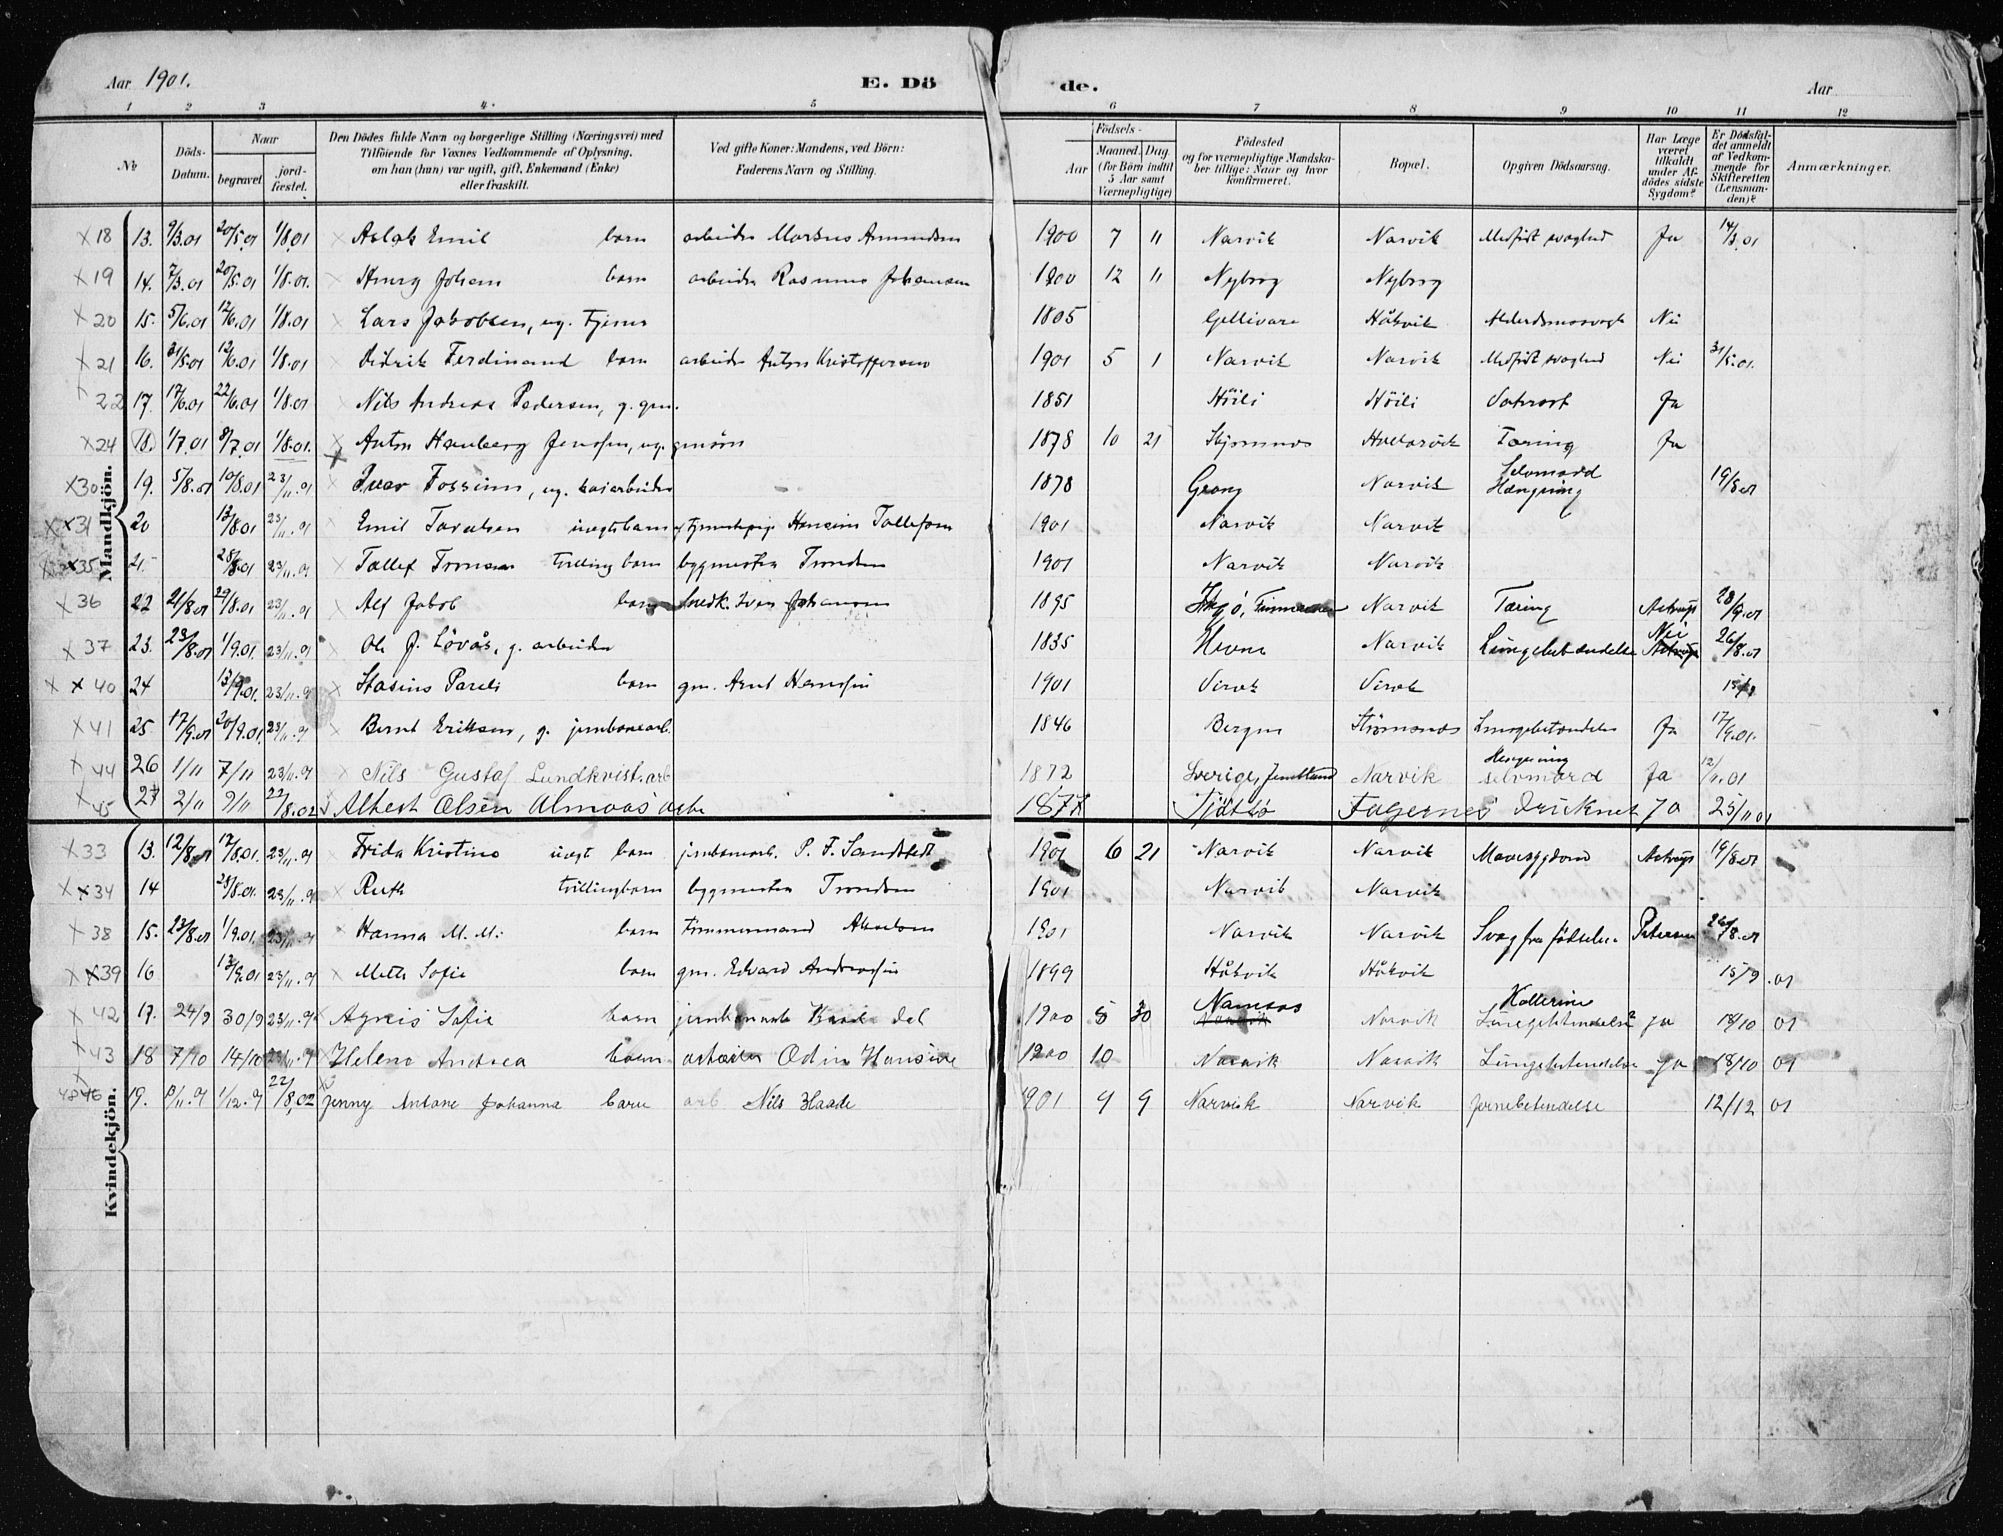 Aar 1901. E. Dö de. Aar
1 2 3 4. 5 6 7 8 9 10 11 12
No Döds-Datum. Naar begravet jordfæstet. Den Dödes fulde Navn og borgerlige Stilling (Næringsvei) med Tilföiende for Voxnes Vedkommende af Oplysning, om han (hun) var ugift, gift, Enkemand (Enke) eller fraskilt. Ved gifte Koner: Mandens, ved Börn: Faderens Navn og Stilling. Födsels- Aar Maaned Dag. (for Börn indtil 5 Aar samt Værnepligtige) Födested og for værnepligtige Mandskaber tillige: Naar og hvor konfirmeret. Bopæl. Opgiven Dödsaarsag. Har Læge været tilkaldt under Afdödes sidste Sygdom? Er Dödsfaldet anmeldt af Vedkommende for Skifteretten (Lensmanden)? Anmærkninger.
Mandkjön.
x18 13. 9/3.01 20/5.01 1/8.01 x Aslak Emil barn arbeider Markus Amundsen 1900 7 11 Narvik Narvik Medfödt svaghed Ja 14/3.01
x19 14. 7/3.01 20/5.01 1/8.01. x Henry Johan barn arbeider Rasmus Johansen 1900 12 11 Nyborg Nyborg
x20 15. 5/6.01 12/6.01 1/8.01 x Lars Jakobsen, ug. Tjener 1805 Gellivare Håkvik Alderdomssvagh Nei
x21 16. 31/5.01 12/6.01 1/8.01 x Didrik Ferdinand barn arbeider Anton Kristoffersen 1901 5 1 Narvik Narvik Medfödt svaghed Nei 31/5.01.
x22 17. 17/6.01 22/6.01 1/8.01 x Nils Andreas Pedersen, g. gm. 1851 Höili Höili Ja
x24 18. 1/7.01 8/7.01 1/8.01. x Anton Hamberg Jensen, ug. 1878 10 21 Skjomnes Tæring Ja
x30 19. 5/8.01 10/8.01 23/11.01 x Ivar ug. 1878 Grong Narvik Selvmord Hængning 19/8.01
xx31 20 13/8.01 23/11.01 x Emil uægte barn Tollefsen 1901 Narvik Narvik
xx35 21. 28/8.01 23/11.01 x Tollef Tronsen trillingbarn bygmester Trondsen 1901 Narvik Narvik
x36 22 21/8.01 29/8.01 23/11.01 x Alf Jakob barn Snedk. Iver Johansen 1895 Narvik Tæring Astrup 28/9.01
x37 23. 23/8.01 1/9.01. 23/11.01 x Ole J. Lövås, g. arbeider 1835 Hevne Narvik Lungebetændelse Nei 26/8.01
xx40 24 13/9.01. 23/11.01 x Stasius Pareli barn gm. Arnt Hansen 1901 Virak Virak
x41 25. 17/9.01 20/9.01. 23/11.01 x Bernt Eriksen, g. jernbanearb. 1846 Bergen Strömsnes Lungebetændelse Ja 17/9.01.
x44 26 1/11 7/11 23/11.01 x Nils Gustaf Lundkvist. arb 1872 Sverige, Jemtland Narvik Hengning selvmord Ja 12/11.01
x45 27 2/11 9/11 22/8.02 Albert Olsen Almaas arb 1877 Tjöttö Fagernes Druknet Ja 25/11 01
Kvindekjön.
x33 13. 12/8.01 17/8.01. 23/11.01 x Frida Kristine uægt barn jernbanearb. P. F. Sandstedt 1901 6 21 Narvik Narvik Mavesygdom Astrup 19/8.01
xx34 14 28/8.01. 23/11.01 x Ruth trillingbarn bygmester Trondsen 1901 Narvik Narvik
x38 15. 23/8.01 1/9.01. 23/11.01 x Hanna M. M. barn Tömmermand 1901 Narvik Narvik Svag fra födselen Petersen 26/8.01
xx39 16 13/9.01 23/11.01 x Mette Sofie barn gm. Edvard Andreassen 1899 Håkvik Håkvik 15/9.01
x42 17. 24/9 30/9 23/11.01 x Agnes Sofie barn 1900 5 30 Namsos Narvik Kollerine Lungebetændelse? ja 18/10 01
x43 18 7/10 14/10 23/11.01 Helene Andrea barn arbeider Odin Hansen 1900 10 Narvik Narvik Lungebetændelse ja 18/10 01
46 19. 1/12.01 22/8.02 x Jenny Antane Johanna barn arb Nils Haade 1901 9 9 Narvik Narvik 12/12 01